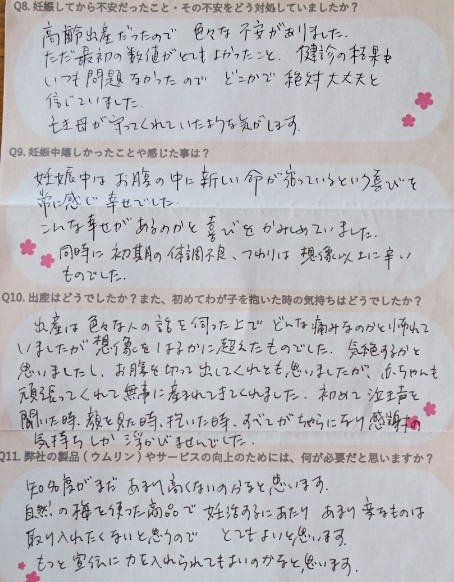 Q8. 妊娠してから不安だったこと・その不安をどう対処していましたか?
高齢出産だったので 色々な不安がありました。
ただ最初の数値がとてもよかったこと、健診の結果も
いつも問題なかったので どこかで絶対大丈夫と
信じていました。
亡き母が守ってくれていたような気がします。
Q9. 妊娠中嬉しかったことや感じた事は?
妊娠中は お腹の中に新しい命が宿っているという喜びを
常に感じ 幸せでした。
こんな幸せがあるのかと 喜びをかみしめていました。
同時に 初期の体調不良、つわりは 想像以上に辛い
ものでした。
Q10. 出産はどうでしたか?また、初めてわが子を抱いた時の気持ちはどうでしたか?
出産は色々な人の話を伺った上で どんな痛みなのかと怖れて
いましたが 想像をはるかに超えたものでした。気絶するかと
思いましたし、お腹を切って出してくれとも思いましたが、赤ちゃんも
頑張ってくれて 無事に産まれてきてくれました。初めて泣き声を
聞いた時、顔を見た時、抱いた時、すべてがちゃらになり 感謝の
気持ちしか 浮かびませんでした。
Q11. 弊社の製品(ウムリン)やサービスの向上のためには、何が必要だと思いますか?
知名度がまだ あまり高くないのかなと思います。
自然の種を使った商品で 妊活するにあたり あまり変なものは
取り入れたくないと思うので とてもよいと思います。
もっと宣伝に力を入れられてもよいのかなと思います。